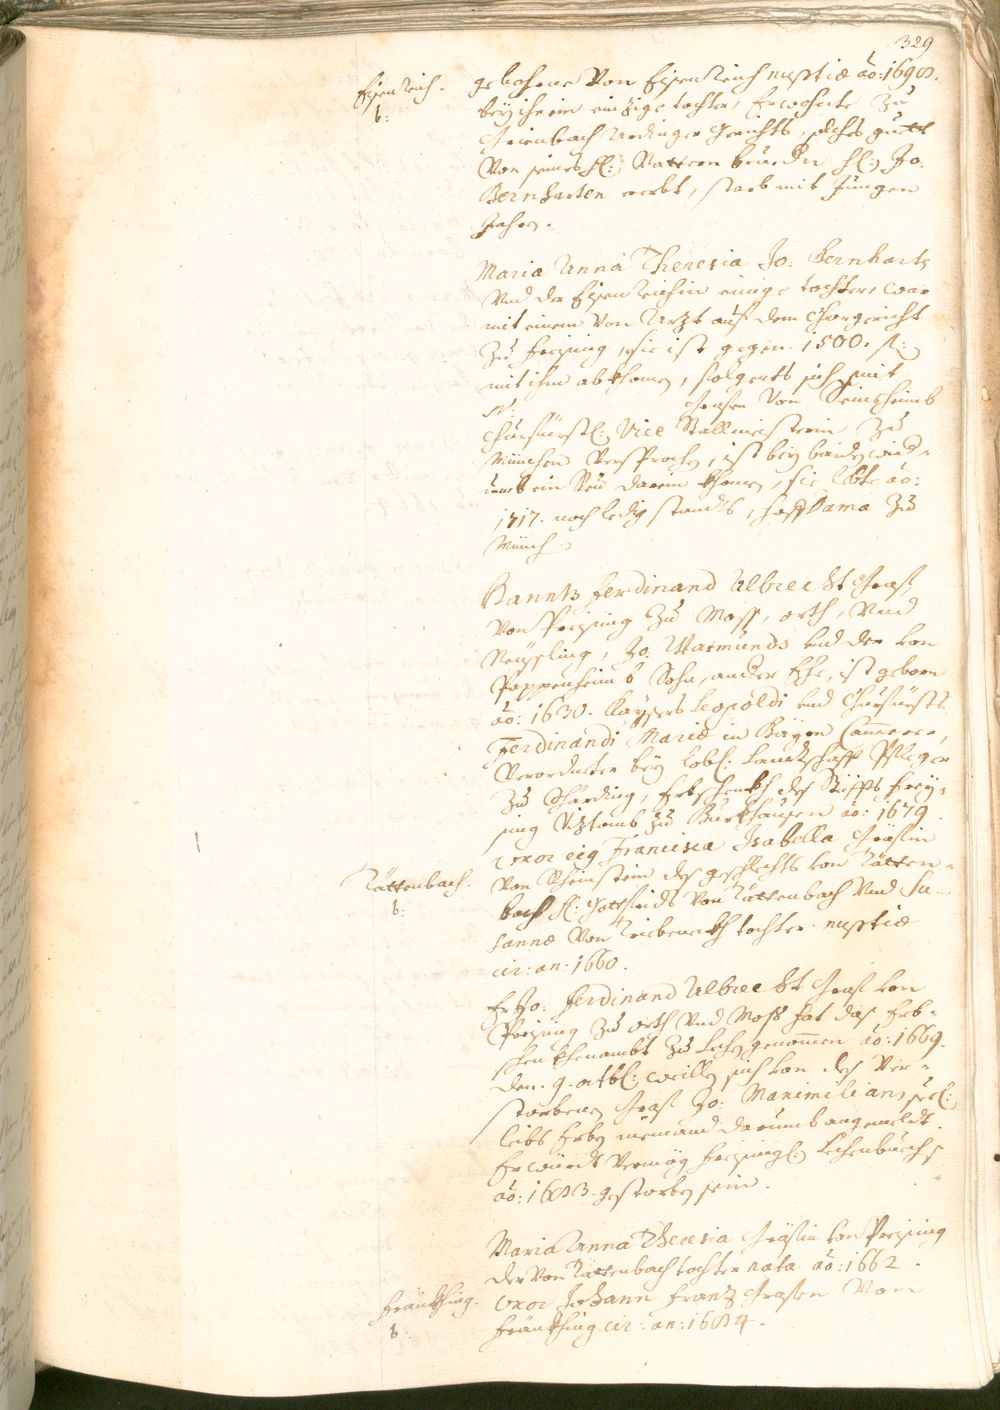 329
Eisenreich.
b:
gebohrne Von Eisenreich nuptiæ aõ: 1698.
bey ihr ein einzige tochter, Er wohnte Zu
Grienbach Ardinger Gerichts, solches guett
Von seines H: Vattern brueder H: Jo:
Bernharten ererbt, starb mit Jungen
Jahrn.
Maria Anna Theresia Jo: Bernharts
Vnd der Eisenreichin ainige tochter, war
mit einem Von Arzt auß dem Chorgericht
Zu freising, sie ist gegen 1500. fl:
mit ihm abkhomen, folgents sich mit
N: Grafen Von Seinsheimb
Churfürstl: Vice Stallmeistern Zu
München Versprochen, ist bey baiden wid-
umb ein Reu darein khomen, sie lebte aõ:
1717. noch ledig stands, hoffdama Zu
Münch:
Hannß Ferdinand Albrecht Graf
Von Preising Zu Moß, orth, Vnd
Neysling, Jo: Warmunds und der von
Pappenheimb Sohn, ander Ehe, ist geborn
aõ: 1630. Kaysers Leopoldi und Churfürsts
Ferdinandi Mariæ in Bayrn Cammerer,
Verordneter bey lobl: Landtschafft Pfleger
Zu Schärding, Erbschenkh des Stiffts Frey-
sing Viztomb zu Burkhausen aõ: 1679.
Rättenbach.
b:
uxor eig Francisca Isabella Gräfin
Von Rheinstein des geschlechts von Tätten-
bach H: Gottfrids Von Tättenbach Vnd Su-
sannæ Von Triebenekh tochter. nuptiæ
cir: an: 1660.
Er Jo: Ferdinand Albrecht Graf von
Preising Zu orth Vnd Moß hat das Erb-
schenkhenambt Zu Lehen genommen aõ: 1669.
den. 9. octbr: weillen sich von des Ver-
storbenen Graf Jo: Maximilians seel:
leibs Erben niemand darumb angemeldt.
Er würdt Vermög freisingl: Lehenbuechs
aõ: 1683. gestorben sein.
Maria Anna Theresia Gräfin von Preising
der Von Tättenbach tochter nata aõ: 1662.
Fränkhing.
b:
uxor Johann Franz Grafen Von
Fränkhing cir: an: 1684.